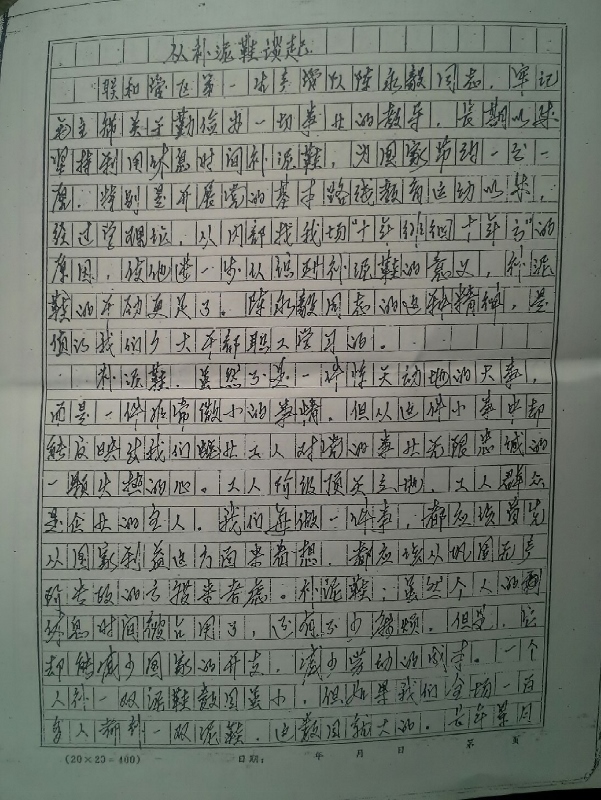 从补泥鞋谈起
联和营区第一生产营队陈永毅同志,牢记
毛主席关于勤俭办一切事业的教导,长期以来
坚持利用休息时间补泥鞋,为国家节约一分一
厘。特别是开展党的基本路线教育运动以来,
经过登犁坛,从内部找我场"十年徘徊十年亏"的
原因,使他进一步认识到补泥鞋的意义,补泥
鞋的干劲更足了。陈永毅同志的这种精神,是
值得我们广大干部职工学习的。
补泥鞋,虽然不是一件惊天动地的大事,
而是一件非常微小的事情。但从这件小事中却
能反映出我们盐业工人对党的事业无限忠诚的
一颗火热的心。工人阶级顶天立地,工人群众
是企业的主人。我们每做一件事,都应该首先
从国家利益这方面来着想,都应该从巩固无产
阶专政的方措来考虑。补泥鞋,虽然个人的
休息时间被占用了,还有不少麻烦。但是,它
却能减少国家的开支,减少劳动的成本。一个
人补一双泥鞋数目虽小,但如果我们全场一百
多人都补一双泥鞋,这数目就大的。长年累月
(20×20=400)
日期: 年 月 日 第 页